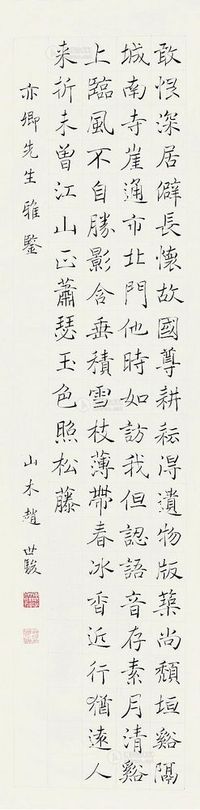 敢恨深居僻長懷故國尊耕耘得遺物版築尚頹垣谿隔
城南寺崖通市北門他時如訪我但認語音存素月清谿
上臨風不自勝影含垂積雪枝薄帶春冰香近行猶遠人
来折未曾江山正蕭瑟玉色照松藤
亦卿先生雅鑒
山木趙世駿